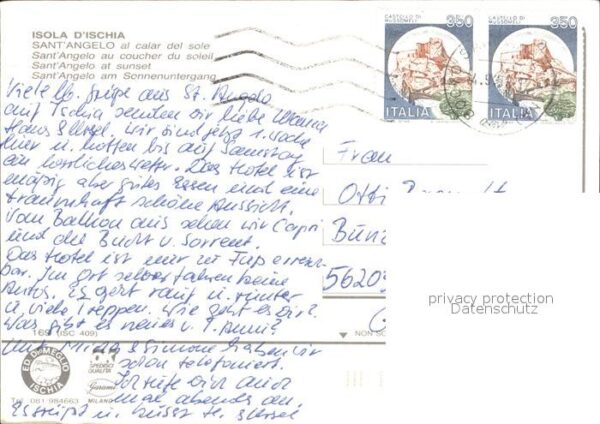 ISOLA D'ISCHIA
SANT'ANGELO al calar del sole
Sant'Angelo au coucher du soleil
Sant'Angelo at sunset
Sant'Angelo am Sonnenuntergang
CASTELLO DI MUSSOMELI 350
ITALIA
CASTELLO DI MUSSOMELI 350
ITALIA
Viele lb. Grüße aus St. Angelo
auf Ischia senden wir liebe
Hans &. Wir sind jetzt 1 Woche
hier u. hatten bis auf Samstag
ein herrliches Wetter. Das Hotel ist
mäßig aber gutes Essen und eine
traumhaft schöne Aussicht.
Vom Balkon aus sehen wir Capri
und die Bucht v. Sorrent.
Das Hotel ist nur zu Fuß erreich-
bar. Im Ort selber fahren keine
Autos. Es geht rauf u. runter
u. viele Treppen. Wie geht es Dir?
Was gibt es neues v. T. Anni?
Und Simone haben wir
schon telefoniert.
Ich rufe Dich auch
mal abends an.
Es grüßt u. küsst
Frau
Otti
Bün
5620
privacy protection
Datenschutz
169 (ISC 409)
NON SC
ED. DI MEGLIO
ISCHIA
Tel. 081 984663
SPEDISCI QUALITÀ
Garami
MILANO